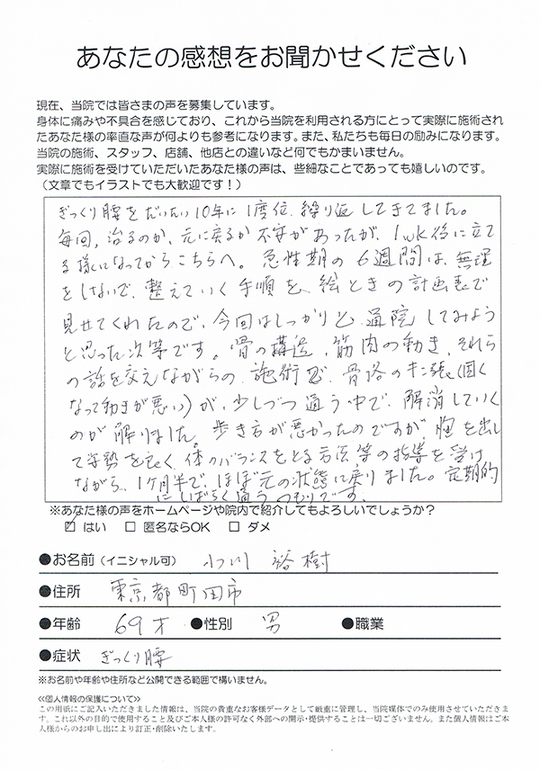 あなたの感想をお聞かせください
現在、当院では皆さまの声を募集しています。
身体に痛みや不具合を感じており、これから当院を利用される方にとって実際に施術され
たあなた様の率直な声が何よりも参考になります。また、私たちも毎日の励みになります。
当院の施術、スタッフ、店舗、他店との違いなど何でもかまいません。
実際に施術を受けていただいたあなた様の声は、些細なことであっても嬉しいのです。
（文章でもイラストでも大歓迎です！）
ぎっくり腰をだいたい10年に1度位、繰り返してきてました。
毎回、治るのか、元に戻るか不安があったが、1wk後に立て
る様になってからこちらへ。急性期の6週間は、無理
をしないで、整えていく手順を、絵ときの計画表で
見せてくれたので、今回はしっかりと通院してみよう
と思った次第です。骨の構造、筋肉の動き、それら
の話を交えながらの、施術で、骨格の緊張(固く
なって動きが悪い)が、少しづつ通う中で、解消していく
のが解りました。歩き方が悪かったのですが胸を出し
て姿勢を良く、体のバランスをとる方法等の指導を受け
ながら、1ヶ月半で、ほぼ元の状態に戻りました。定期的
にしばらく通うつもりです。
※あなた様の声をホームページや院内で紹介してもよろしいでしょうか？
☑ はい □ 匿名ならOK □ ダメ
●お名前（イニシャル可） 小川 裕樹
●住所 東京都町田市
●年齢 69才 ●性別 男 ●職業
●症状 ぎっくり腰
※お名前や年齢や住所など公開できる範囲で構いません。
≪個人情報の保護について≫
この用紙にご記入いただきました情報は、当院の貴重なお客様データとして厳重に管理し、当院媒体でのみ使用させていただきま
す。これ以外の目的で使用すること及びご本人様の許可なく外部への開示・提供することは一切ございません。また個人情報はご本
人様からのお申し出により訂正・削除いたします。